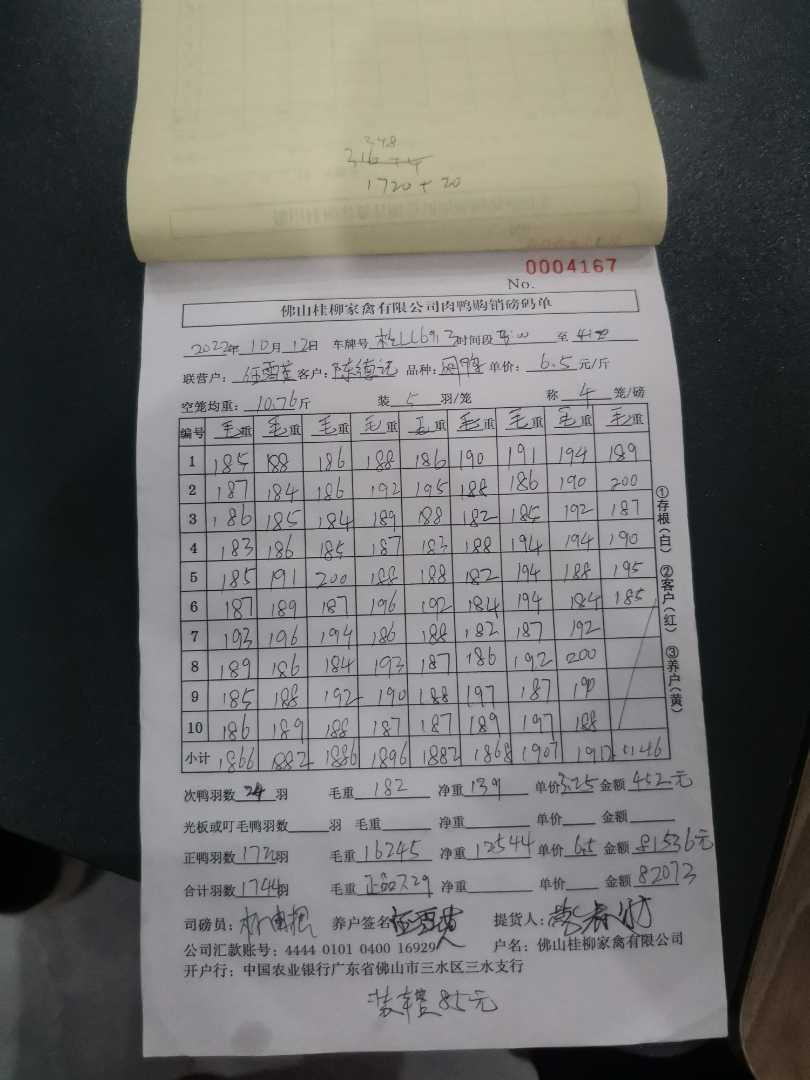 348
316 + 4
1720 + 20
0004167
No.
佛山桂柳家禽有限公司肉鸭购销磅码单
2022年 10月 12日 车牌号 时间段 至
联营户: 伍雪 客户: 陈德记 品种: 单价: 6.5 元/斤
空笼均重: 10.76 斤 装 5 羽/笼 称 4 笼/磅
编号 毛重 毛重 毛重 毛重 毛重 毛重 毛重 毛重 毛重
1 185 188 186 188 186 190 191 194 189
2 187 184 186 192 195 188 186 190 200
3 186 185 184 189 188 182 185 192 187
4 183 186 185 187 183 188 194 194 190
5 185 191 200 188 188 182 194 188 195
6 187 189 187 196 192 184 194 184 185
7 193 196 194 186 188 182 187 192
8 189 186 184 193 187 186 192 200
9 185 188 192 190 188 197 187 190
10 186 189 188 187 187 189 197 188
小计 1866 1882 1886 1896 1882 1868 1907 1912 1146
①存根(白) ②客户(红) ③养户(黄)
次鸭羽数 24 羽 毛重 182 净重 139 单价 3.25 金额 452元
光板或叮毛鸭羽数 羽 毛重 净重 单价 金额
正鸭羽数 1720羽 毛重 16245 净重 12544 单价 6.5 金额 81536元
合计羽数 1744羽 毛重 正品7.29 净重 单价 金额 82073
司磅员: 养户签名 伍雪 提货人:
公司汇款账号: 4444 0101 0400 16929 户名: 佛山桂柳家禽有限公司
开户行: 中国农业银行广东省佛山市三水区三水支行
装车费85元